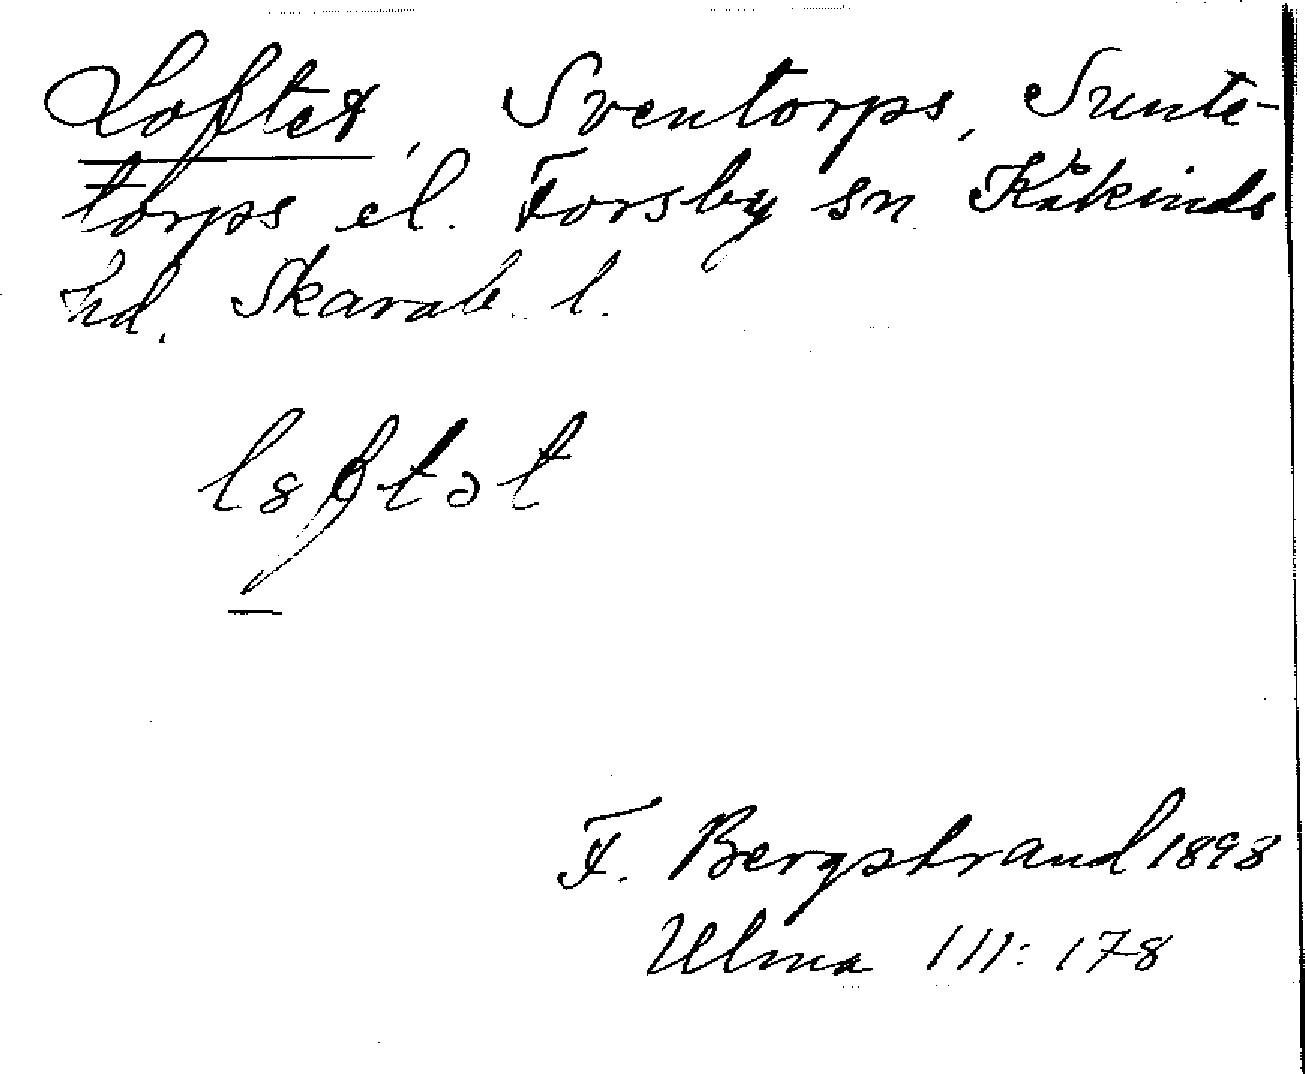 Loftet, Sventorps, Sunte-
torps el. Forsby sn Kåkinds
hd. Skarab. l.
l8ftət
F. Bergstrand 1898
Ulma 111: 178